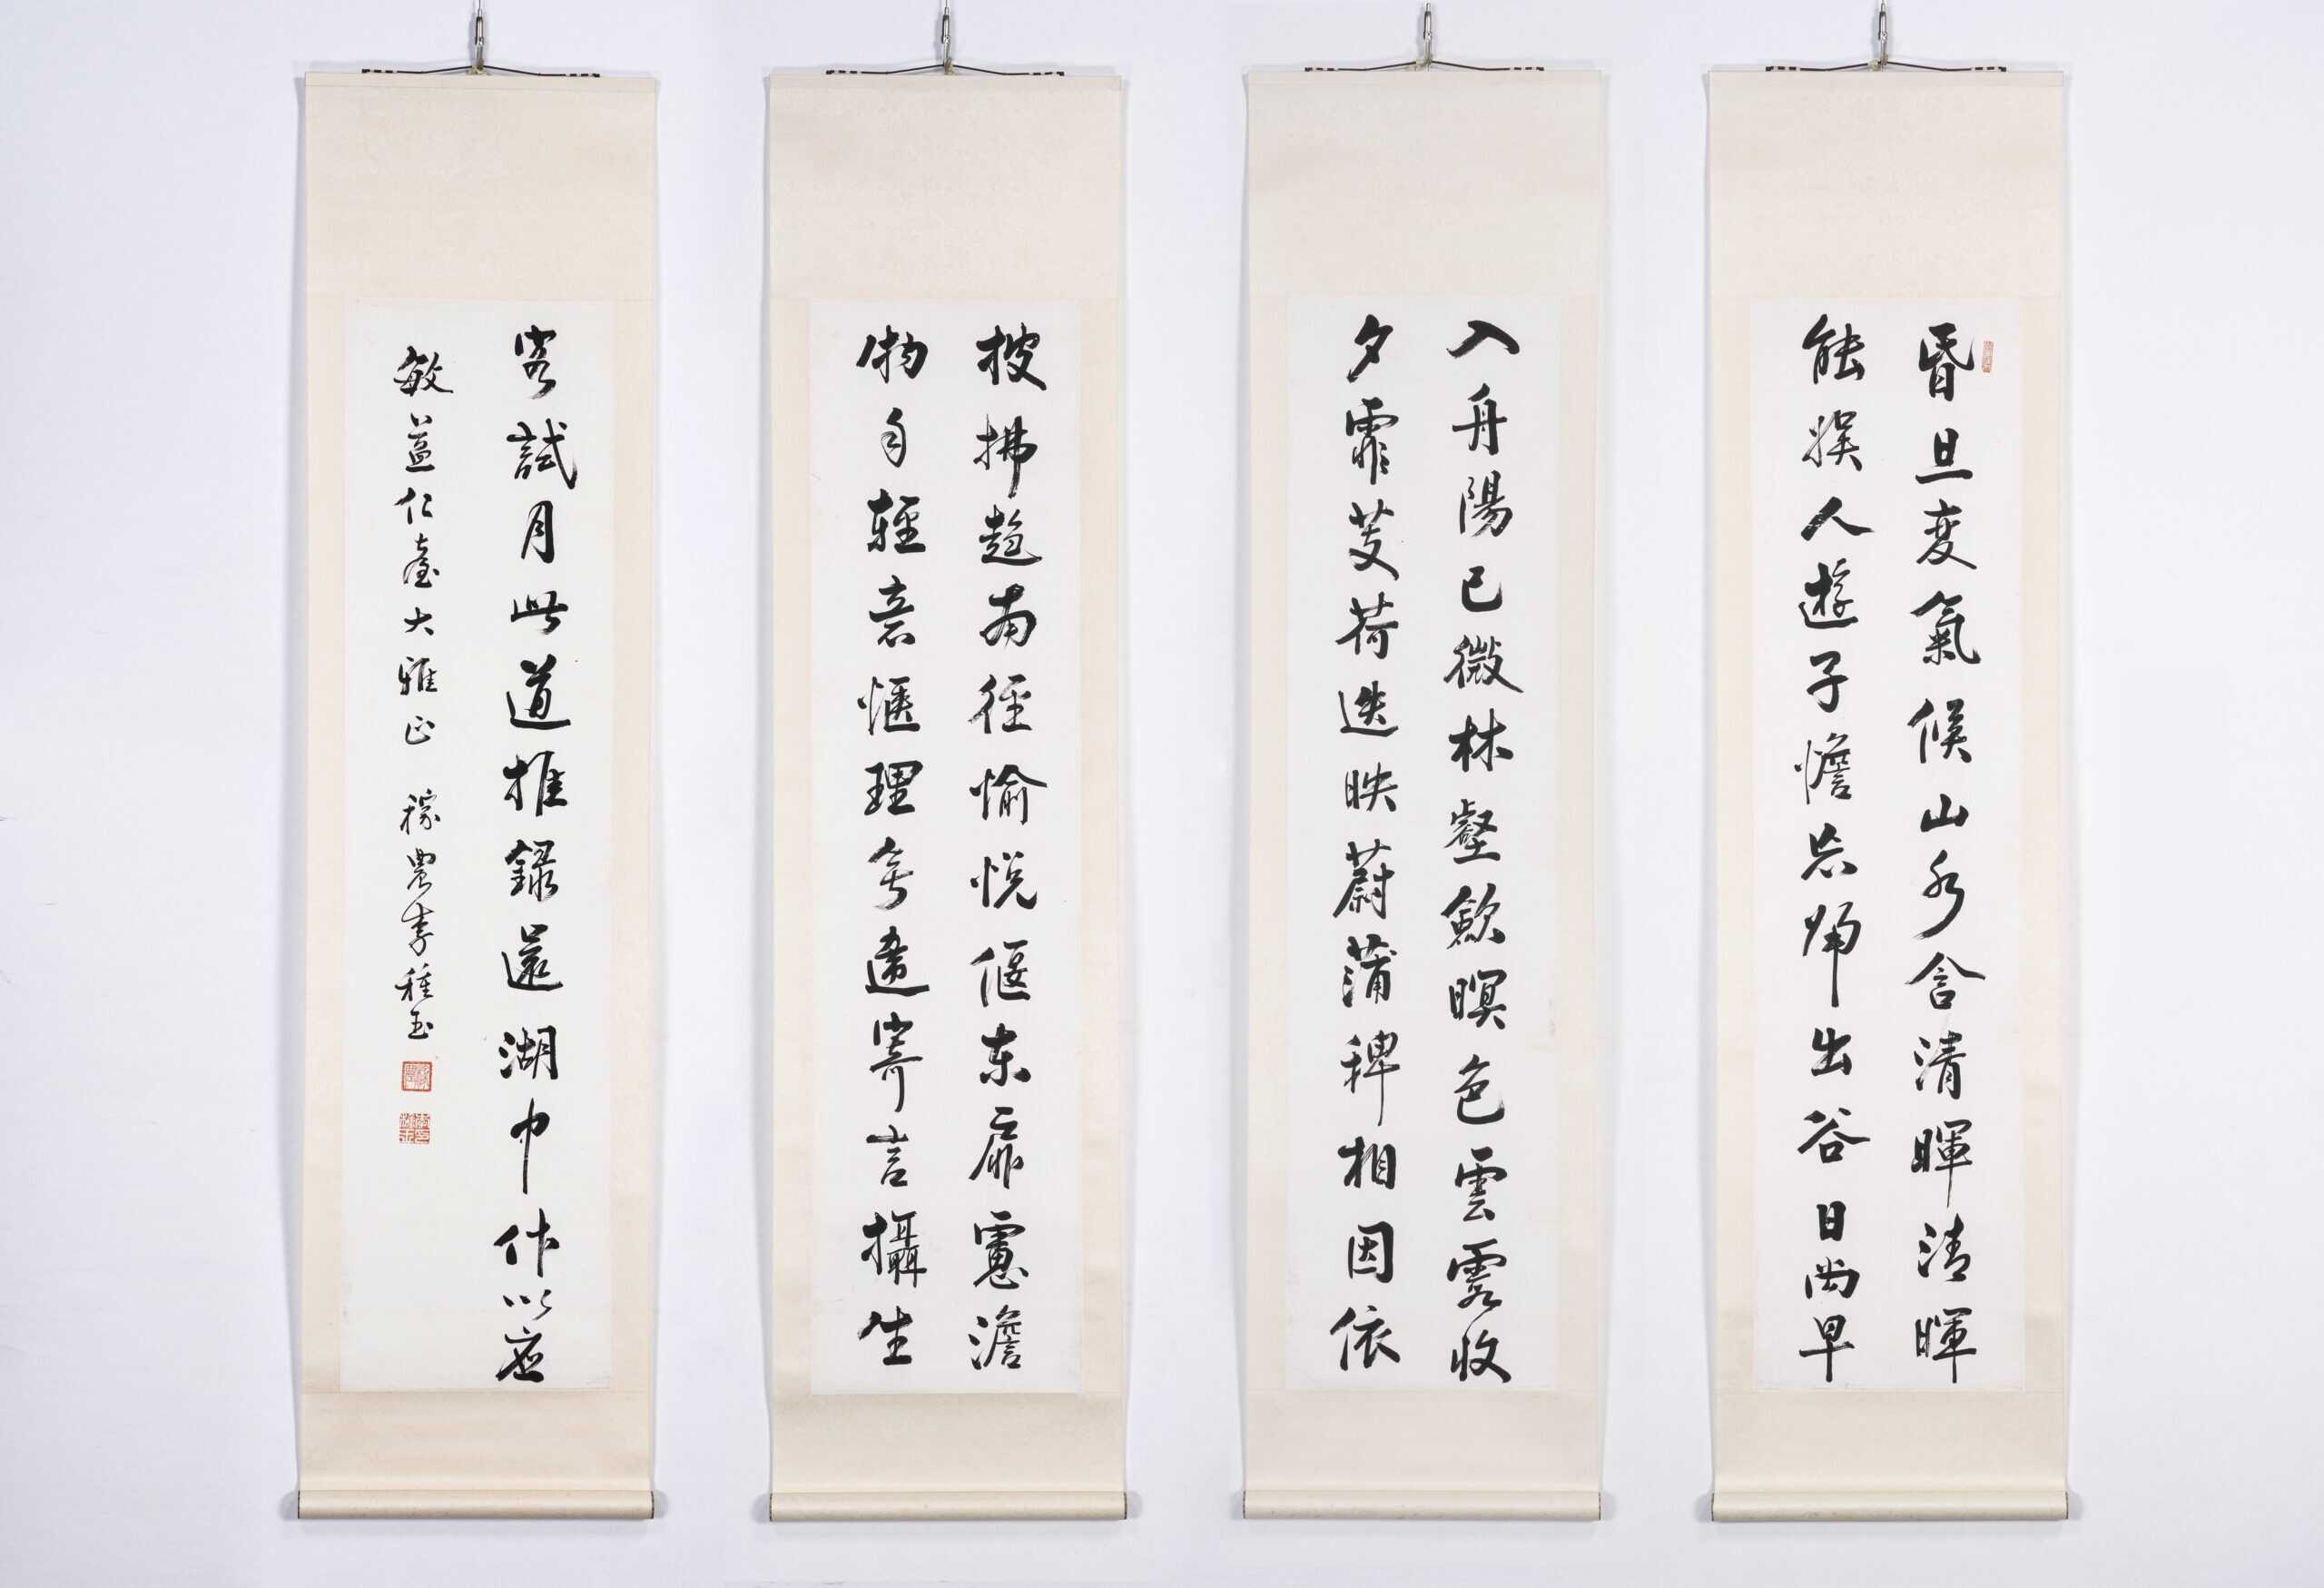 昏旦變氣候山水含清暉清暉
能娛人遊子憺忘歸出谷日尚早
入舟陽已微林壑歛暝色雲霞收
夕霏芰荷迭映蔚蒲稗相因依
披拂趨南徑愉悅偃東扉慮澹
物自輕意愜理無違寄言攝生
客試用此道推 錄還湖中作以應
敏益仁臺大雅正 稼農李種玉